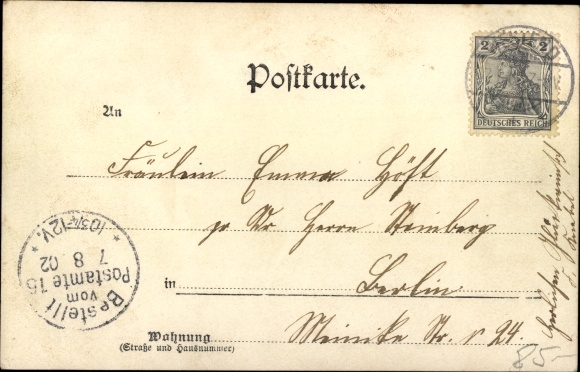 Postkarte.
2 2
DEUTSCHES REICH
An
Fräulein Emma Höft
pr Dr Herrn Steinberg
in Berlin
Wohnung
(Straße und Hausnummer)
Meinike Str. 24.
Bestellt
vom
Postamte 15
7 8 02
10¾-12V.
Herzlichen
85-